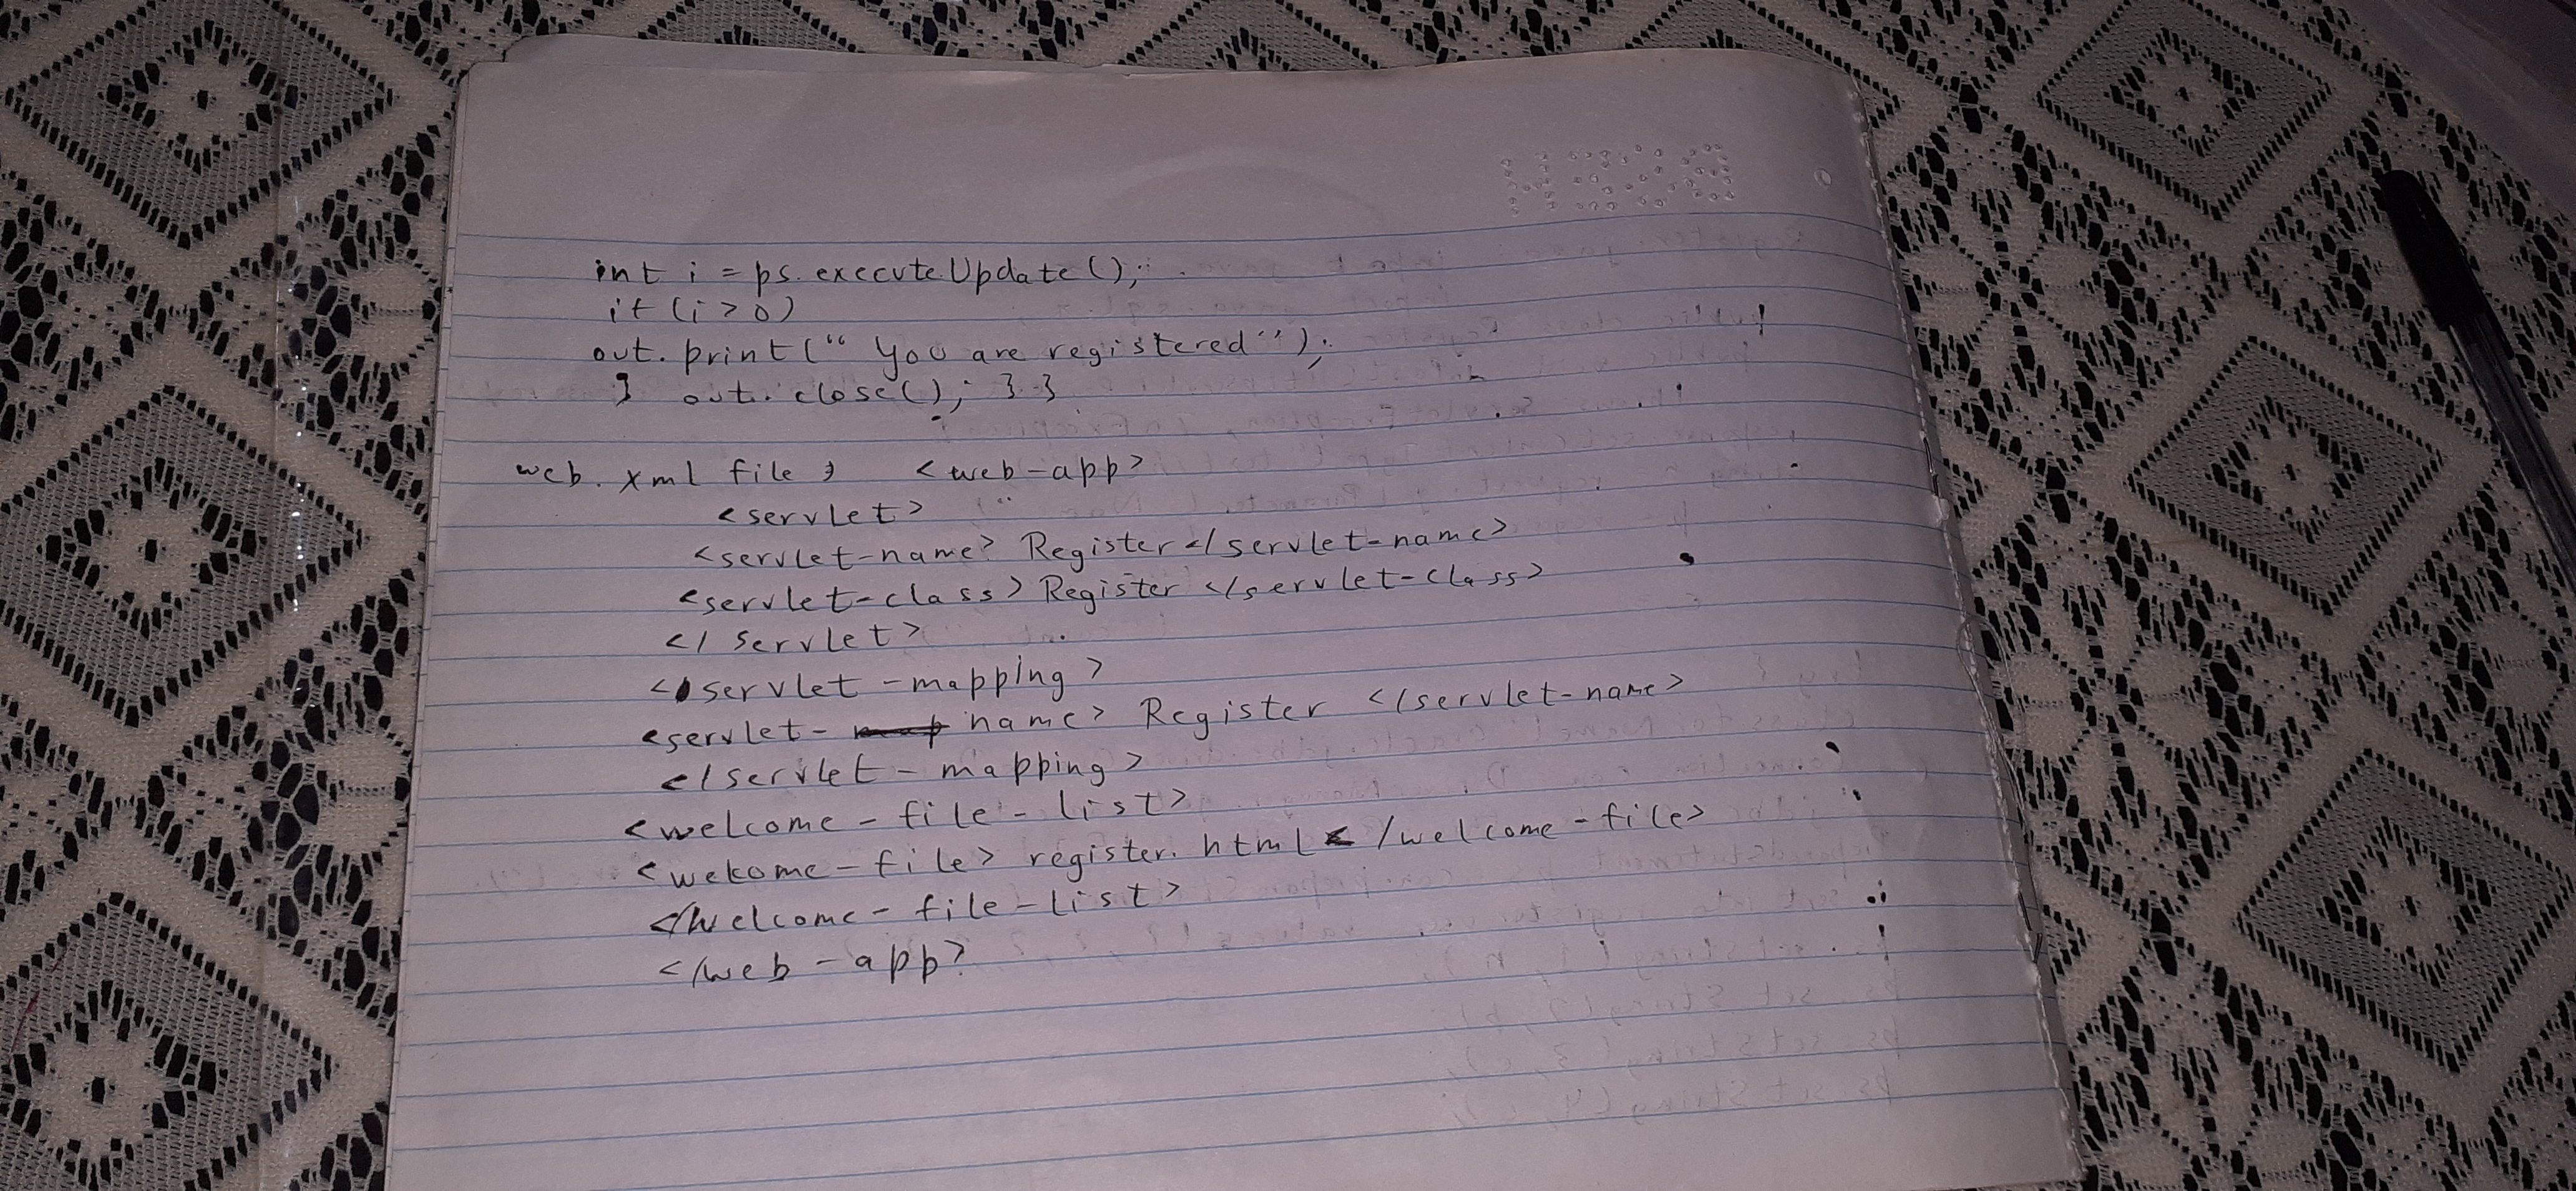 int i = ps.executeUpdate();
if (i > 0)
out.print("You are registered");
} out.close(); } }
web.xml file, <web-app>
<servlet>
<servlet-name> Register </servlet-name>
<servlet-class> Register </servlet-class>
</servlet>
<servlet-mapping>
<servlet-name> Register </servlet-name>
</servlet-mapping>
<welcome-file-list>
<welcome-file> register.html </welcome-file>
</welcome-file-list>
</web-app>